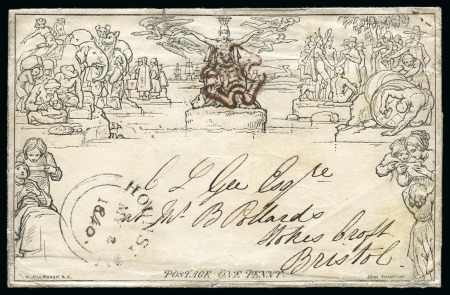 C L Gee Esqre
at Mr B Pollards
Stokes Croft
Bristol
1840
POSTAGE ONE PENNY.
W. MULREADY. R.A.
JOHN THOMPSON